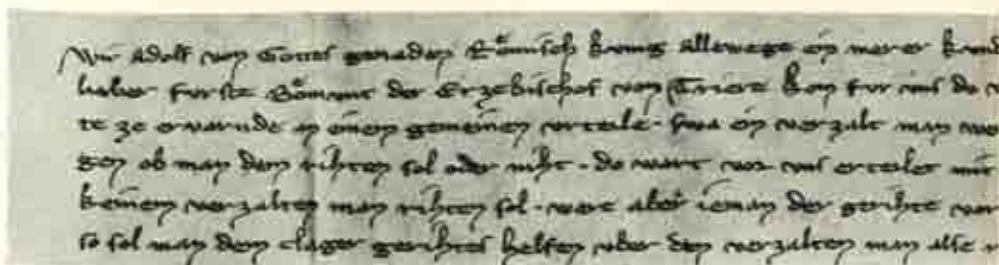 Wir Adolf von Gottes genaden Römisch kunig allewege ein merer
lieber furste Bömunt der Erzebischof von Triere kom fur uns do
te ze ervarnde an einem gemeinen urteile · swa ein verzalt man
gen ob man dem rihten sol oder niht · do wart vor uns erteilet mit
keinem verzalten man rihten sol · were aber ieman der gerihte
so sol man dem clager gerihtes helfen uber den verzalten man alse